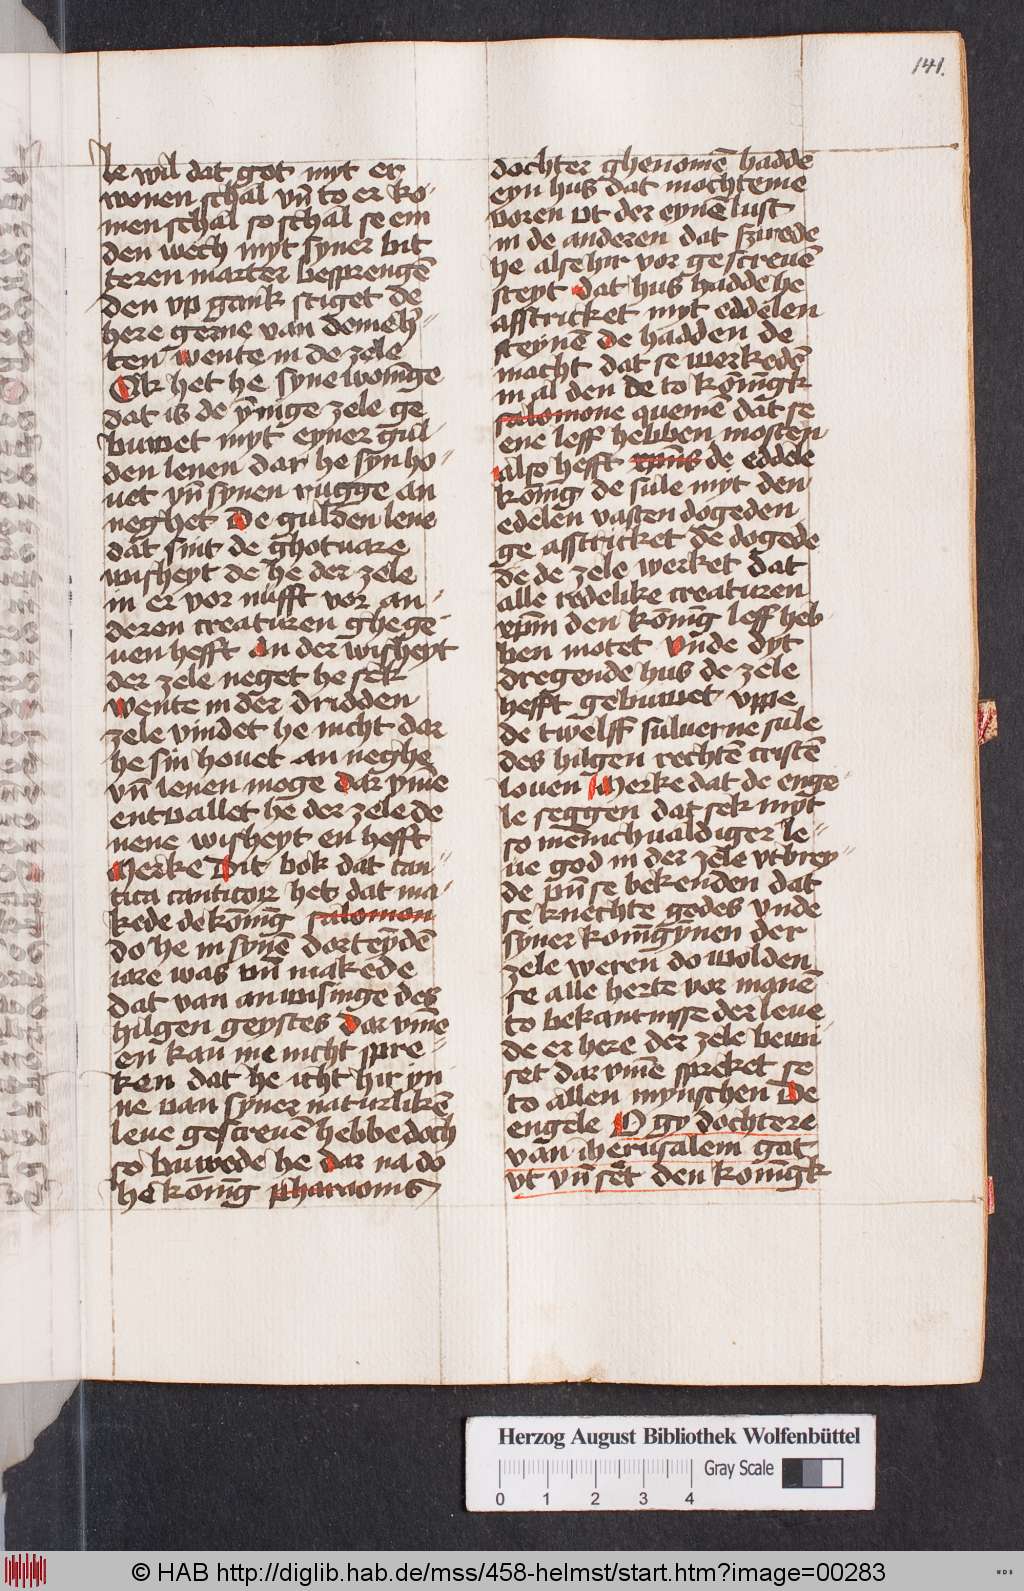 141.
le wil dat got myt er
wonen schal vn̄ to er ko-
men schal so schal se em
den wech myt syner bit
teren marter besprengē
den vp gank stiget de
here gerne van demeh-
ten wente in de zele
Ok het he syne woninge
dat is de ynige zele ge
buwet myt eyner gul-
den lenen dar he syn ho-
uet vn̄ synen rugge an
neghet De gulden lene
dat sint de ghotuare
wisheyt de he der zele
in er vor nufft vor an-
deren creaturen ghege-
uen hefft an der wisheyt
der zele neget he sek
wente in der dridden
zele vindet he nicht dar
he sin houet an neghe
vn̄ lenen moge dar vme
entvallet he der zele de
nene wisheyt en hefft
Merke Dit bok dat can-
tica canticorum het dat ma-
kede de konīg salomon
do he in synē dorteydē
iare was vn̄ makede
dat van anwisinge des
hilgen geystes Dar vme
en kan me nicht spre-
ken dat he icht hir yn
ne van syner naturlikē
leue gescreuē hebbe doch
so buwede he dar na do
he konīg pharaonis
dochter ghenomē hadde
eyn hus dat mochteme
voren vt der eynē lust
in de anderen dat fzirede
he alse hir vor gescreuē
steyt dat hus hadde he
affstricket myt eddelen
steynē De hadden de
macht dat se werkedē
in al den de to konīgk
salomone quemē dat se
ene leff hebben mosten
also hefft xpūs de eddele
konīg de sule myt den
edelen vasten dogeden
ge affstricket de dogede
de de zele werket dat
alle redelike creaturen
xpm̄ den konīg leff heb
ben motet vnde dyt
dregende hus de zele
hefft gebuwet vppe
de twelff suluerne sule
des hilgen rechtē cristē
louen Merke dat de enge-
le seggen dat sek myt
so mēnichualdiger le-
ue god in der zele vtbrey-
de vn̄ se bekenden dat
se knechte godes vnde
syner konīgynen der
zele weren do wolden
se alle herte vor manē
to bekantnisse der leue
de er here der zele bewi-
set dar vmē spreket se
to allen mynschen De
engele O gy dochtere
van iherusalem gat
vt vn̄ set den konīgk
Herzog August Bibliothek Wolfenbüttel
Gray Scale
0 1 2 3 4
© HAB http://diglib.hab.de/mss/458-helmst/start.htm?image=00283